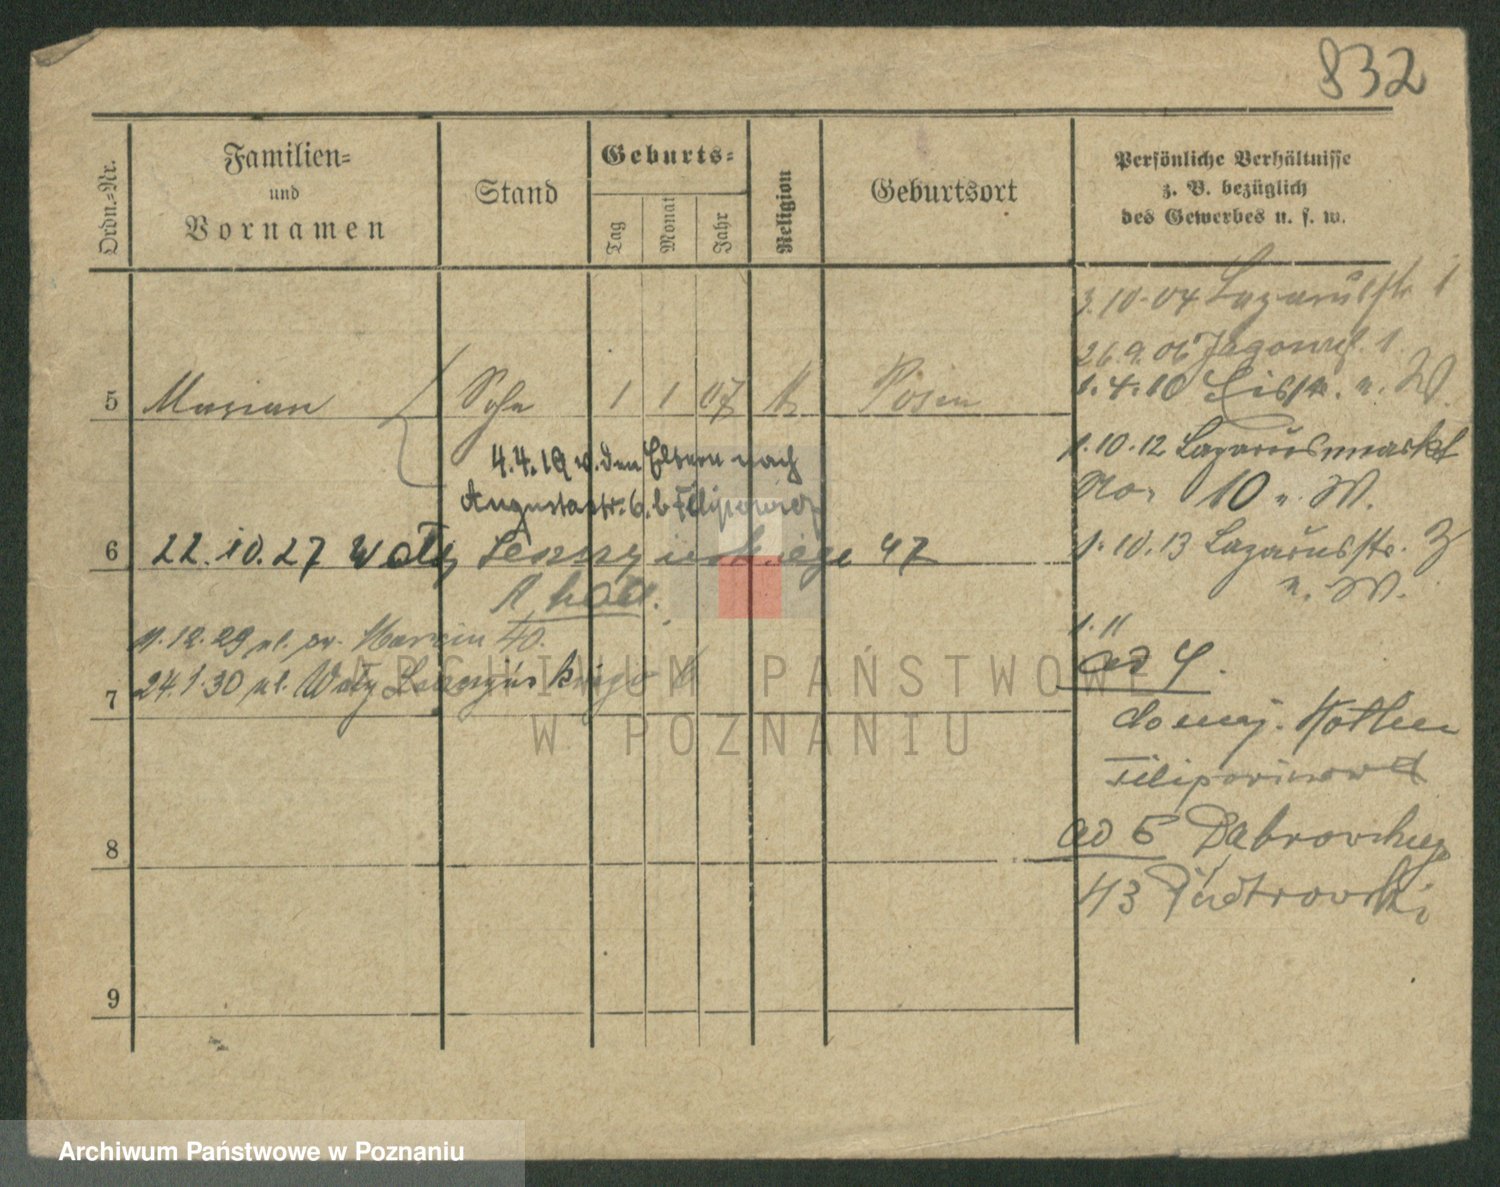 832
Ordn.-Nr.
Familien-
und
Vornamen
Stand
Geburts-
Tag
Monat
Jahr
Religion
Geburtsort
Persönliche Verhältnisse
z. B. bezüglich
des Gewerbes u. s. w.
3.10.04 Lazarusstr 1
26.9.06 1.
5 Marian Sohn 1 1 07 K Posen
1.4.10 u. W.
4.4.19 v. den Eltern nach
Augustastr. 6. b Filipowicz
1.10.12 Lazarusmarkt
No. 10 u. W.
6 22.10.27 Wały Leszczyńskiego 47
1.10.13 Lazarusstr. 3
u. W.
1.12.29 ul. św. Marcin 40.
24.1.30 ul. Wały Leszczyńskiego
7
1.11
ad 4.
Filipowicz
8
ad 5 Dąbrowskiego
43 Piotrowski
9
ARCHIWUM PAŃSTWOWE
W POZNANIU
Archiwum Państwowe w Poznaniu